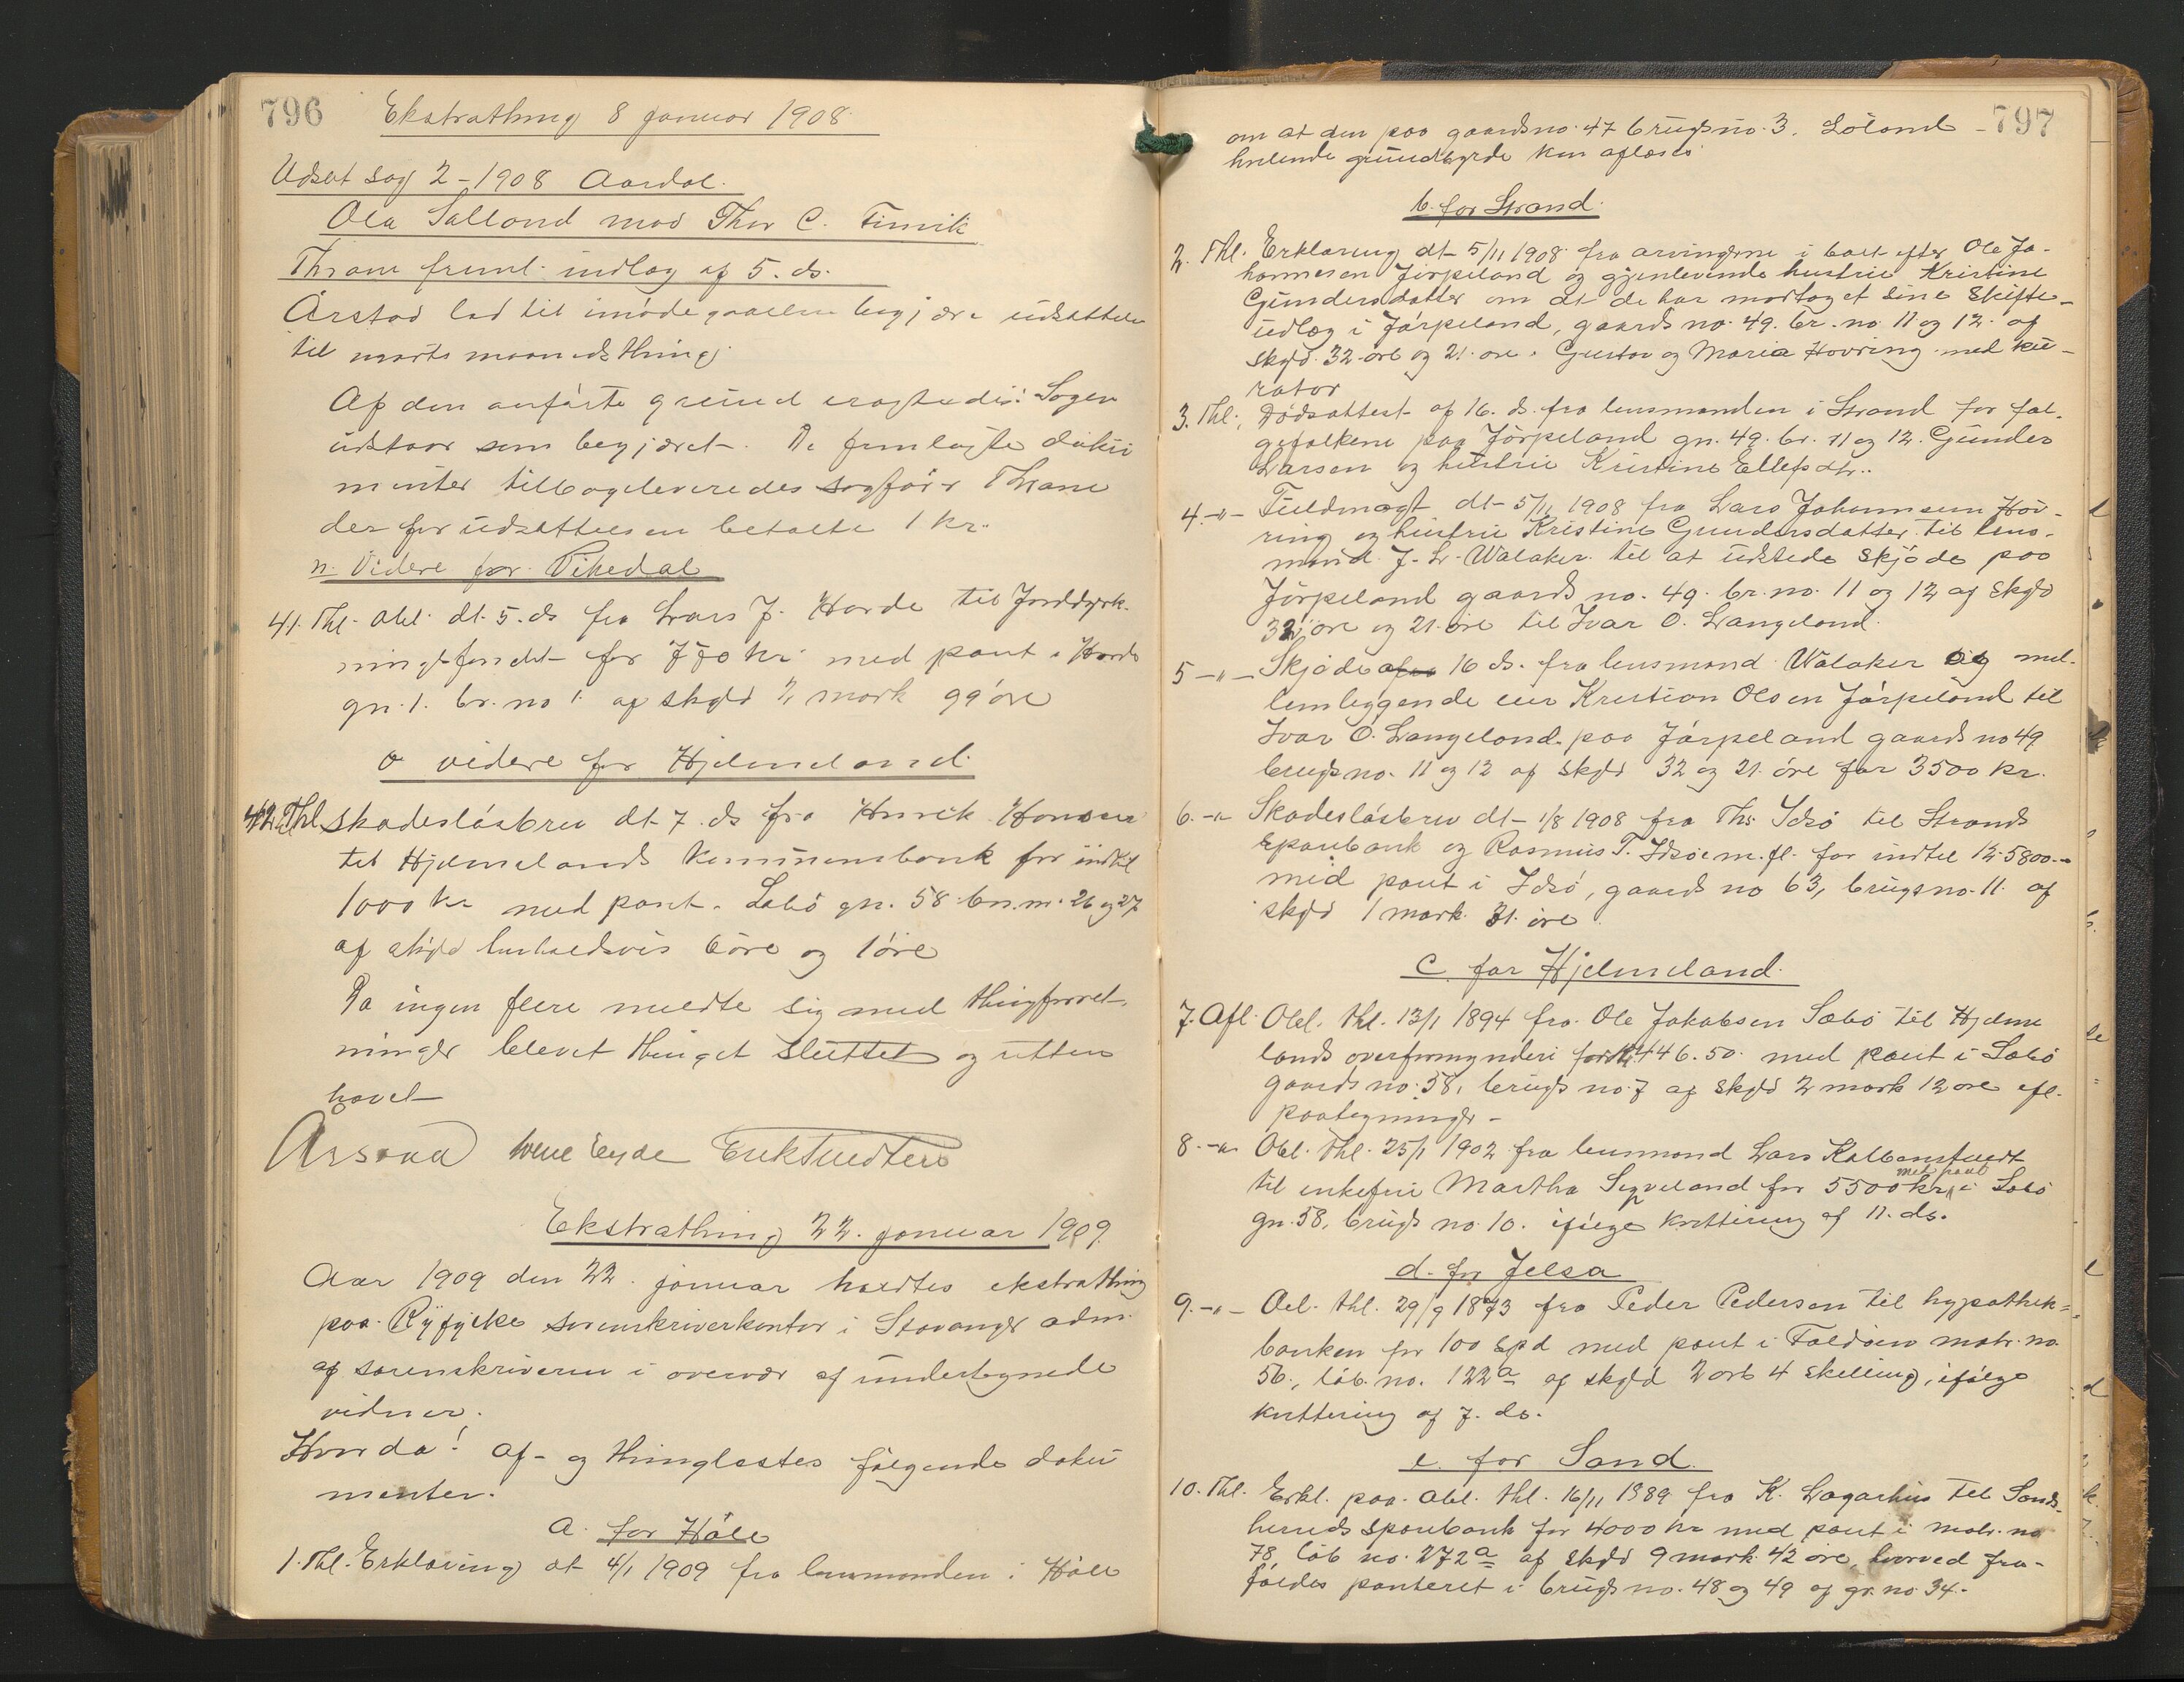 796 Ekstrathing 8 januar 1908.
Udsat sag 2-1908 Aardal.
Ola Salland mod Thor C. Tunvik
Thrane freml. indlæg af 5. ds.
Årstad lod til imødegaaelse begjære udsættelse
til marts maanedsthing.
Af den anførte grund eragtedis: Sagen
udstaar som begjæret. De fremlagte doku
menter tilbageleveredes sagfører Thrane
der for udsættelsen betalte 1 kr.
n. Videre for Vikedal
41. Thl. obl. dt. 5. ds fra Lars J. Harde til Jorddyrk-
ningsfondet for 770 kr. med pant i Harde
gn. 1. br. no 1. af skyld 2 mark 99 øre
o videre for Hjelmeland.
42. Thl. skadesløsbrev dt. 7. ds fra Henrik Hansen
til Hjelmelands kommunebank for indtil
1000 kr med pant i Sæbø gn. 58 bn. nr. 26 og 27
af skyld henholdsvis 6 øre og 1 øre
Da ingen flere meldte sig med thingforret-
ninger blevet thinget sluttet og retten
hævet
Arstad
Ekstrathing 22. januar 1909.
Aar 1909 den 22. januar holdtes ekstrathing
paa Ryfylke sorenskriverkontor i Stavanger adm.
af sorenskriveren i overvær af undertegnede
vidner.
Hvorda! af- og thinglæstes følgende doku
menter.
a. for Høle
1. Thl. Erklæring dt 4/1 1909 fra lensmanden i Høle
797
om at den paa gaardsno. 47 brugsno. 3. Løland
hvilende grundbyrde kan aflæses
b. for Strand.
2. Thl. Erklæring dt- 5/11 1908 fra arvingerne i boet efter Ole Jo-
hannesen Jørpeland og gjenlevende hustru Kristine
Gundersdatter om at de har modtaget sine skifte-
udlæg i Jørpeland, gaards no. 49. br. no 11 og 12. af
skyld. 32 øre og 21. øre. Gustav og Maria Hovring med ku-
rator
3. Thl. Dødsattest af 16. ds. fra lensmanden i Strand for føl-
gefolkene paa Jørpeland gn. 49. br. 11 og 12. Gunder
Larsen og hustru Kristine Ellefsdtr..
4. -"- Fuldmagt dt- 5/11 1908 fra Lars Johannesen Høv-
ring og hustru Kristine Gundersdatter til lens-
mand J. L. Walaker til at udstede skjøde paa
Jørpeland gaards no. 49. br. no. 11 og 12 af skyld
32 øre og 21. øre til Ivar O. Langeland.
5 -"- Skjøde afra 16 ds. fra lensmand Walaker og mel-
lemliggende eier Kristian Olsen Jørpeland til
Ivar O. Langeland. paa Jørpeland gaards no 49
brugsno. 11 og 12 af skyld 32 og 21. øre for 3500 kr.
6. -"- Skadesløsbrev dt- 1/8 1908 fra Ths Idsø til Strands
Sparebank og Rasmus T. Idsøe m. fl. for indtil kr. 5800.-
med pant i Idsø, gaards no 63, brugsno. 11. af
skyld 1 mark 31. øre
c. for Hjelmeland.
7. Afl. Obl. thl. 13/1 1894 fra Ole Jakobsen Sæbø til Hjelme
lands overformynderi for kr 446.50. med pant i Sæbø
gaards no. 58, brugs no. 7 af skyld 2 mark 12 øre efl.
paategninger -
8. -"- Obl. thl. 25/1 1902 fra lensmand Lars Kalbanstvedt
til enkefru Martha Segveland for 5500 kr. med pant i Sæbø
gn. 58, brugs no. 10. ifølge kvittering af 11. ds.
d. for Jelsa
9. -"- Obl. thl. 29/9 1873 fra Peder Pedersen til hypothek-
banken for 100 Spd med pant i Foldøen matr. no.
56., løb. no. 122a af skyld 2 ort 4 skelling, ifølge
kvittering af 7. ds.
e. for Sand.
10. Thl. Erkl. paa obl. thl. 16/11 1889 fra K. Lagarhus til Sands-
herreds sparebank for 4000 kr med pant i matr. no
78, løb no. 272a af skyld 9 mark 42 øre, hvorved fra-
faldes panteret i brugs no. 48 og 49 af gr. no 34.-